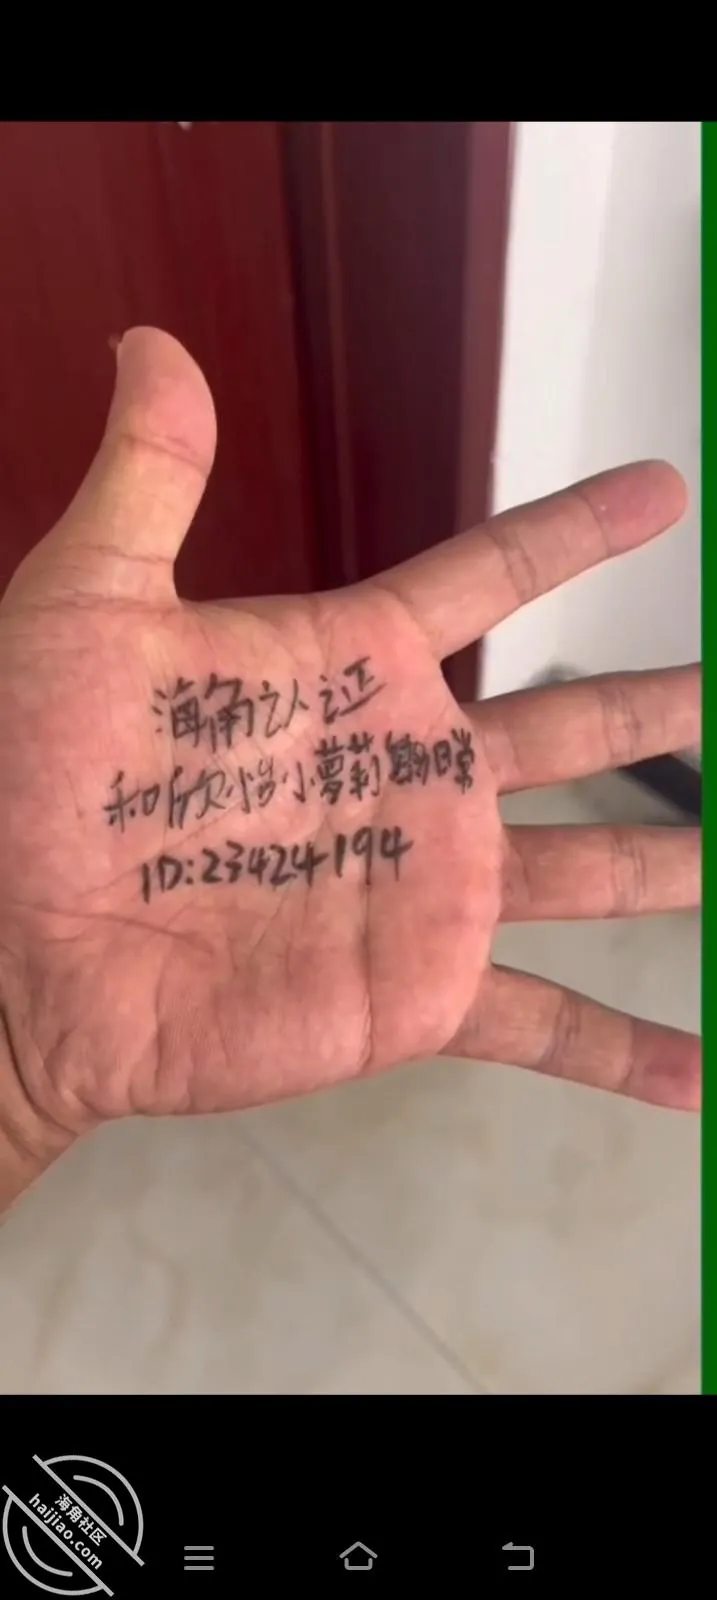 海角认证
和欣怡小萝莉的日常
ID:23424194
海角社区
haijiao.com